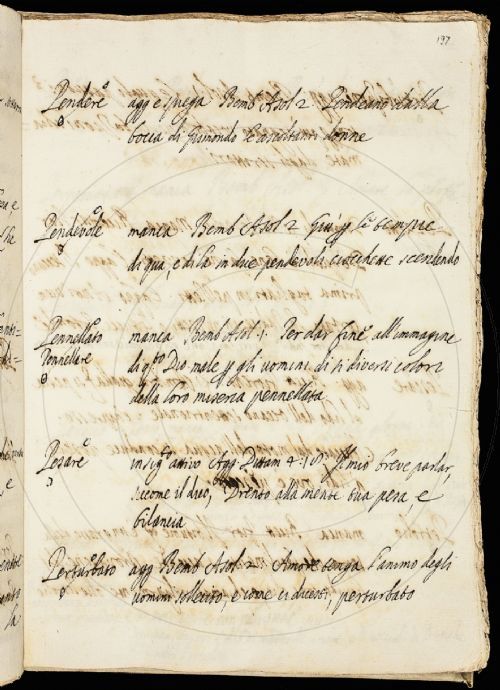 197
Pendere agg e spiega Bemb Asol 2 Pendeano dalla
bocca di Gismondo l'ascoltanti donne
Pendevole manca Bemb Asol 2 Giù p le tempie
di qua, e di là in due pendevoli ciocchette scendendo
Pennellato manca Bemb Asol 1 Per dar fine all'immagine
Pennellare di qto Dio male p gli uomini di sì diversi colori
della loro miseria pennellata
Pesare in sigto attivo Agg Dittam 4 Il mio breve parlar,
siccome il dico, Drento alla mente tua pesa, e
bilancia
Perturbato agg Bemb Asol 2 Amore tenga l'animo degli
uomini sollecito, e come ci dicesti, perturbato